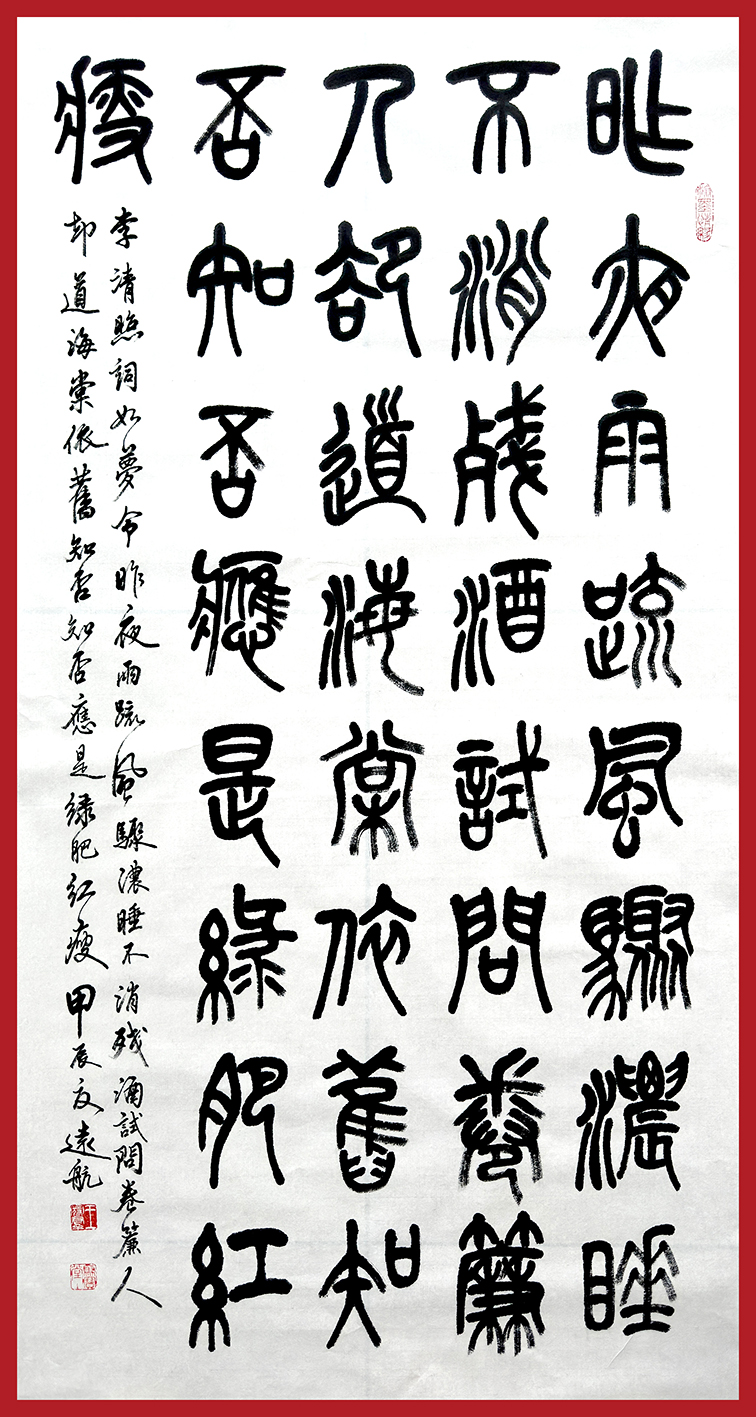 昨夜雨疏風驟濃睡
不消殘酒試問卷簾
人卻道海棠依舊知
否知否應是綠肥紅
瘦
李清照詞如夢令昨夜雨疏風驟濃睡不消残酒試問卷簾人
却道海棠依舊知否知否應是緑肥紅瘦甲辰夏遠航